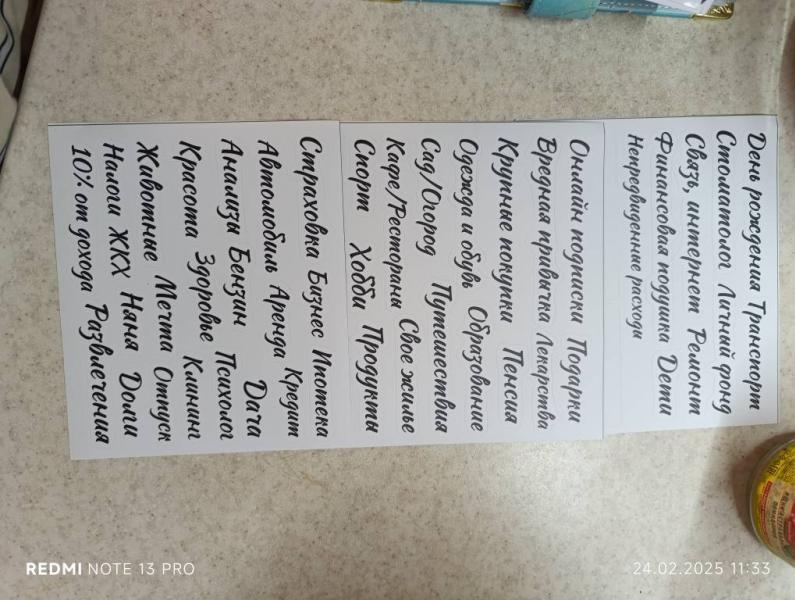 День рождения Транспорт
Стоматолог Личный фонд
Связь, интернет Ремонт
Финансовая подушка Дети
Непредвиденные расходы
Онлайн подписки Подарки
Вредная привычка Лекарства
Крупные покупки Пенсия
Одежда и обувь Образование
Сад/Огород Путешествия
Кафе/Рестораны Свое жилье
Спорт Хобби Продукты
Страховка Бизнес Ипотека
Автомобиль Аренда Кредит
Анализы Бензин Дача
Красота Здоровье Психолог
Животные Мечта Клининг
Налоги ЖКХ Няня Отпуск
10% от дохода Развлечения Долги
REDMI NOTE 13 PRO
24.02.2025 11:33